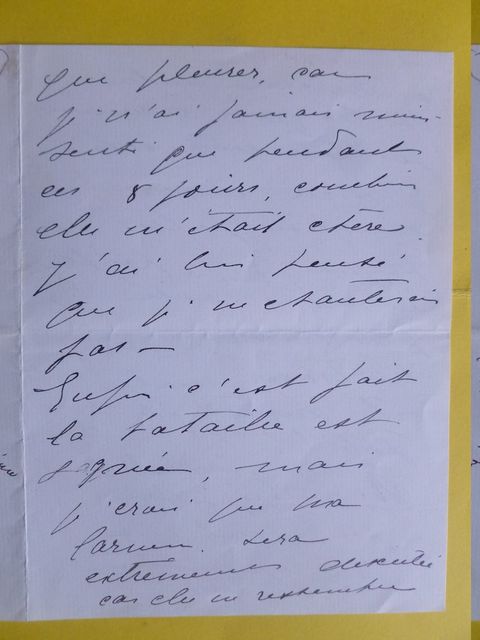 que pleurer, car
j'n'ai jamais mieux
senti que pendant
ces 8 jours, combien
elle m'était chère.
J'ai cru pensé
que je ne chanterais
pas —
Enfin c'est fait
la bataille est
gagnée, mais
j'crois que ma
Carmen sera
extrêmement discutée
car elle ne ressemble